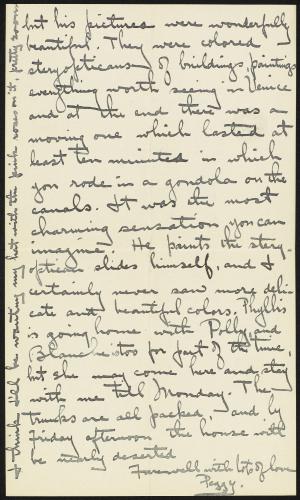 but his pictures were wonderfully
beautiful. They were colored
stereopticeans of buildings, paintings
everything worth seeing in Venice
and at the end there was a
moving one which lasted at
least ten minutes in which
you rode in a gondola on the
canals. It was the most
charming sensation you can
imagine. He paints the stere-
optican slides himself, and I
certainly never saw more deli-
cate and beautiful colors. Phyllis
is going home with Polly, and
Blanche is too for part of the time,
but she may come here and stay
with me till Monday. The
trunks are all packed, and by
Friday afternoon the house will
be nearly deserted
Farewell with lots of love
Peggy.
I think I'll be wearing my hat with the pink roses on it pretty soon